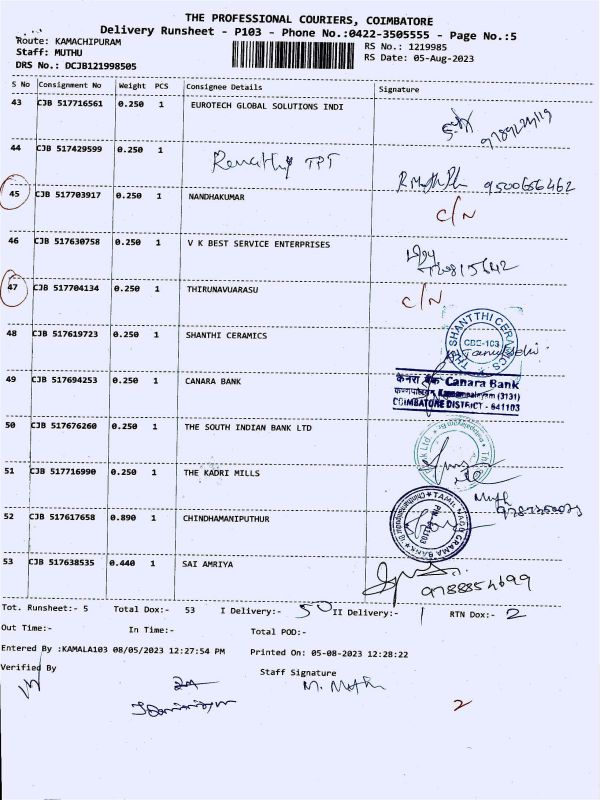 THE PROFESSIONAL COURIERS, COIMBATORE
Delivery Runsheet - P103 - Phone No.:0422-3505555 - Page No.:5
Route: KAMACHIPURAM
RS No.: 1219985
Staff: MUTHU
RS Date: 05-Aug-2023
DRS No.: DCJB121998505
S No Consignment No Weight PCS Consignee Details Signature
43 CJB 517716561 0.250 1 EUROTECH GLOBAL SOLUTIONS INDI
44 CJB 517429599 0.250 1 TPT
9500656462
45 CJB 517703917 0.250 1 NANDHAKUMAR C/N
46 CJB 517630758 0.250 1 V K BEST SERVICE ENTERPRISES
47 CJB 517704134 0.250 1 THIRUNAVUARASU C/N
48 CJB 517619723 0.250 1 SHANTHI CERAMICS
SHANTTHI CERAMICS
CBE-103
49 CJB 517694253 0.250 1 CANARA BANK
केनरा बैंक Canara Bank
(3131)
COIMBATORE DISTRICT - 641103
50 CJB 517676260 0.250 1 THE SOUTH INDIAN BANK LTD
51 CJB 517716990 0.250 1 THE KADRI MILLS
52 CJB 517617658 0.890 1 CHINDHAMANIPUTHUR
TAMIL NADU GRAMA BANK
53 CJB 517638535 0.440 1 SAI AMRIYA
Tot. Runsheet:- 5 Total Dox:- 53 I Delivery:- 50 II Delivery:- 1 RTN Dox:- 2
Out Time:- In Time:- Total POD:-
Entered By :KAMALA103 08/05/2023 12:27:54 PM Printed On: 05-08-2023 12:28:22
Verified By Staff Signature
2